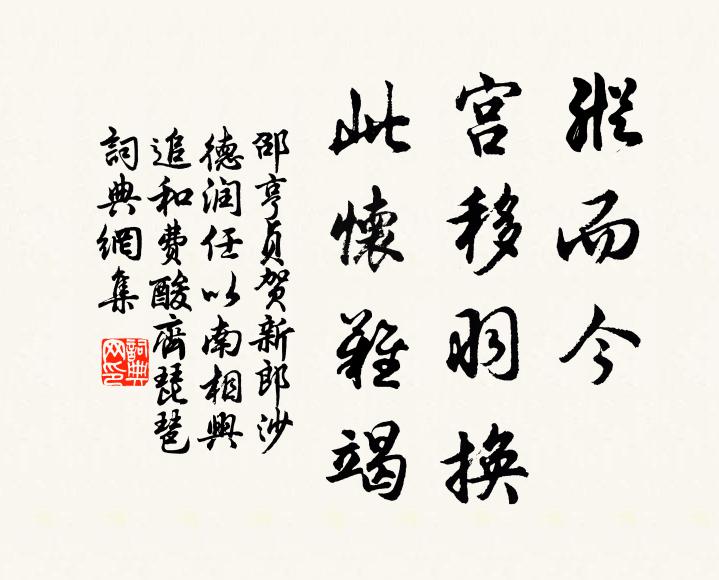 縱而今
宮移羽換
此懷難竭
邵亨貞賀新郎沙
德润任以南相與
追和費酸齋琵琶
詞典網集
詞典网印